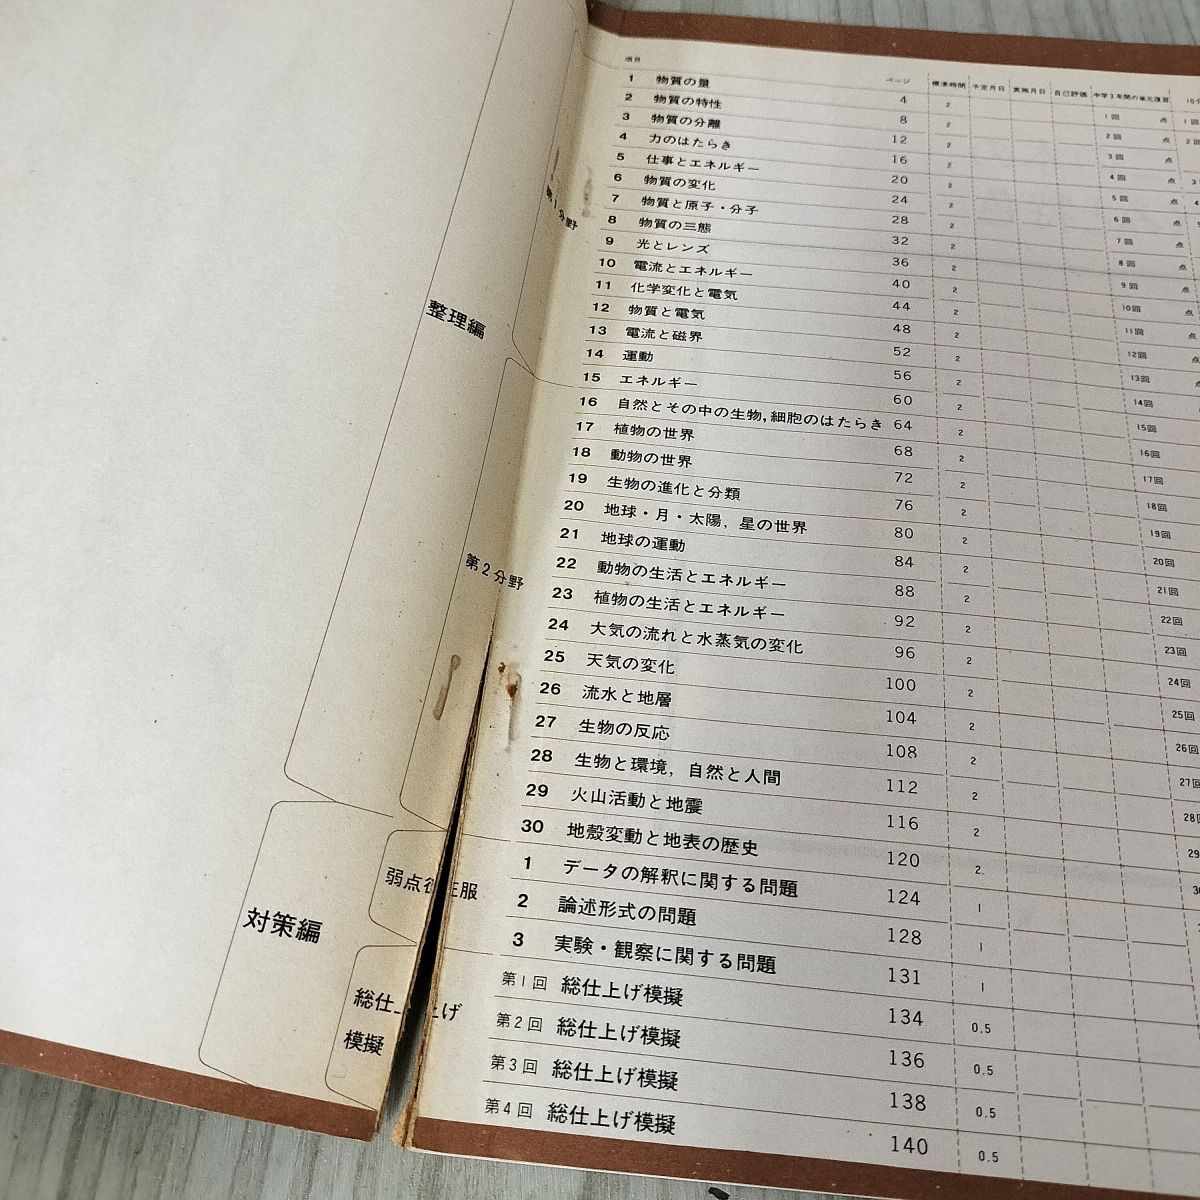 項目 ページ 標準時間 予定月日 実施月日 自己評価 中学3年間の単元復習 10分
整理編
第1分野
1 物質の量 4 2 1回 点 1回
2 物質の特性 8 2 2回 点 2回
3 物質の分離 12 2 3回 点
4 力のはたらき 16 2 4回 点 3
5 仕事とエネルギー 20 2 5回 点 4
6 物質の変化 24 2 6回 点
7 物質と原子・分子 28 2 7回 点
8 物質の三態 32 2 8回 点
9 光とレンズ 36 2 9回 点
10 電流とエネルギー 40 2 10回 点
11 化学変化と電気 44 2 11回 点
12 物質と電気 48 2 12回 点
13 電流と磁界 52 2 13回 点
14 運動 56 2 14回
15 エネルギー 60 2 15回
第2分野
16 自然とその中の生物,細胞のはたらき 64 2 16回
17 植物の世界 68 2 17回
18 動物の世界 72 2 18回
19 生物の進化と分類 76 2 19回
20 地球・月・太陽,星の世界 80 2 20回
21 地球の運動 84 2 21回
22 動物の生活とエネルギー 88 2 22回
23 植物の生活とエネルギー 92 2 23回
24 大気の流れと水蒸気の変化 96 2 24回
25 天気の変化 100 2 25回
26 流水と地層 104 2 26回
27 生物の反応 108 2 27回
28 生物と環境,自然と人間 112 2 28回
29 火山活動と地震 116 2 29
30 地殻変動と地表の歴史 120 2. 30
対策編
弱点 服
1 データの解釈に関する問題 124 1
2 論述形式の問題 128 1
3 実験・観察に関する問題 131 1
総仕上げ
模擬
第1回 総仕上げ模擬 134 0.5
第2回 総仕上げ模擬 136 0.5
第3回 総仕上げ模擬 138 0.5
第4回 総仕上げ模擬 140 0.5